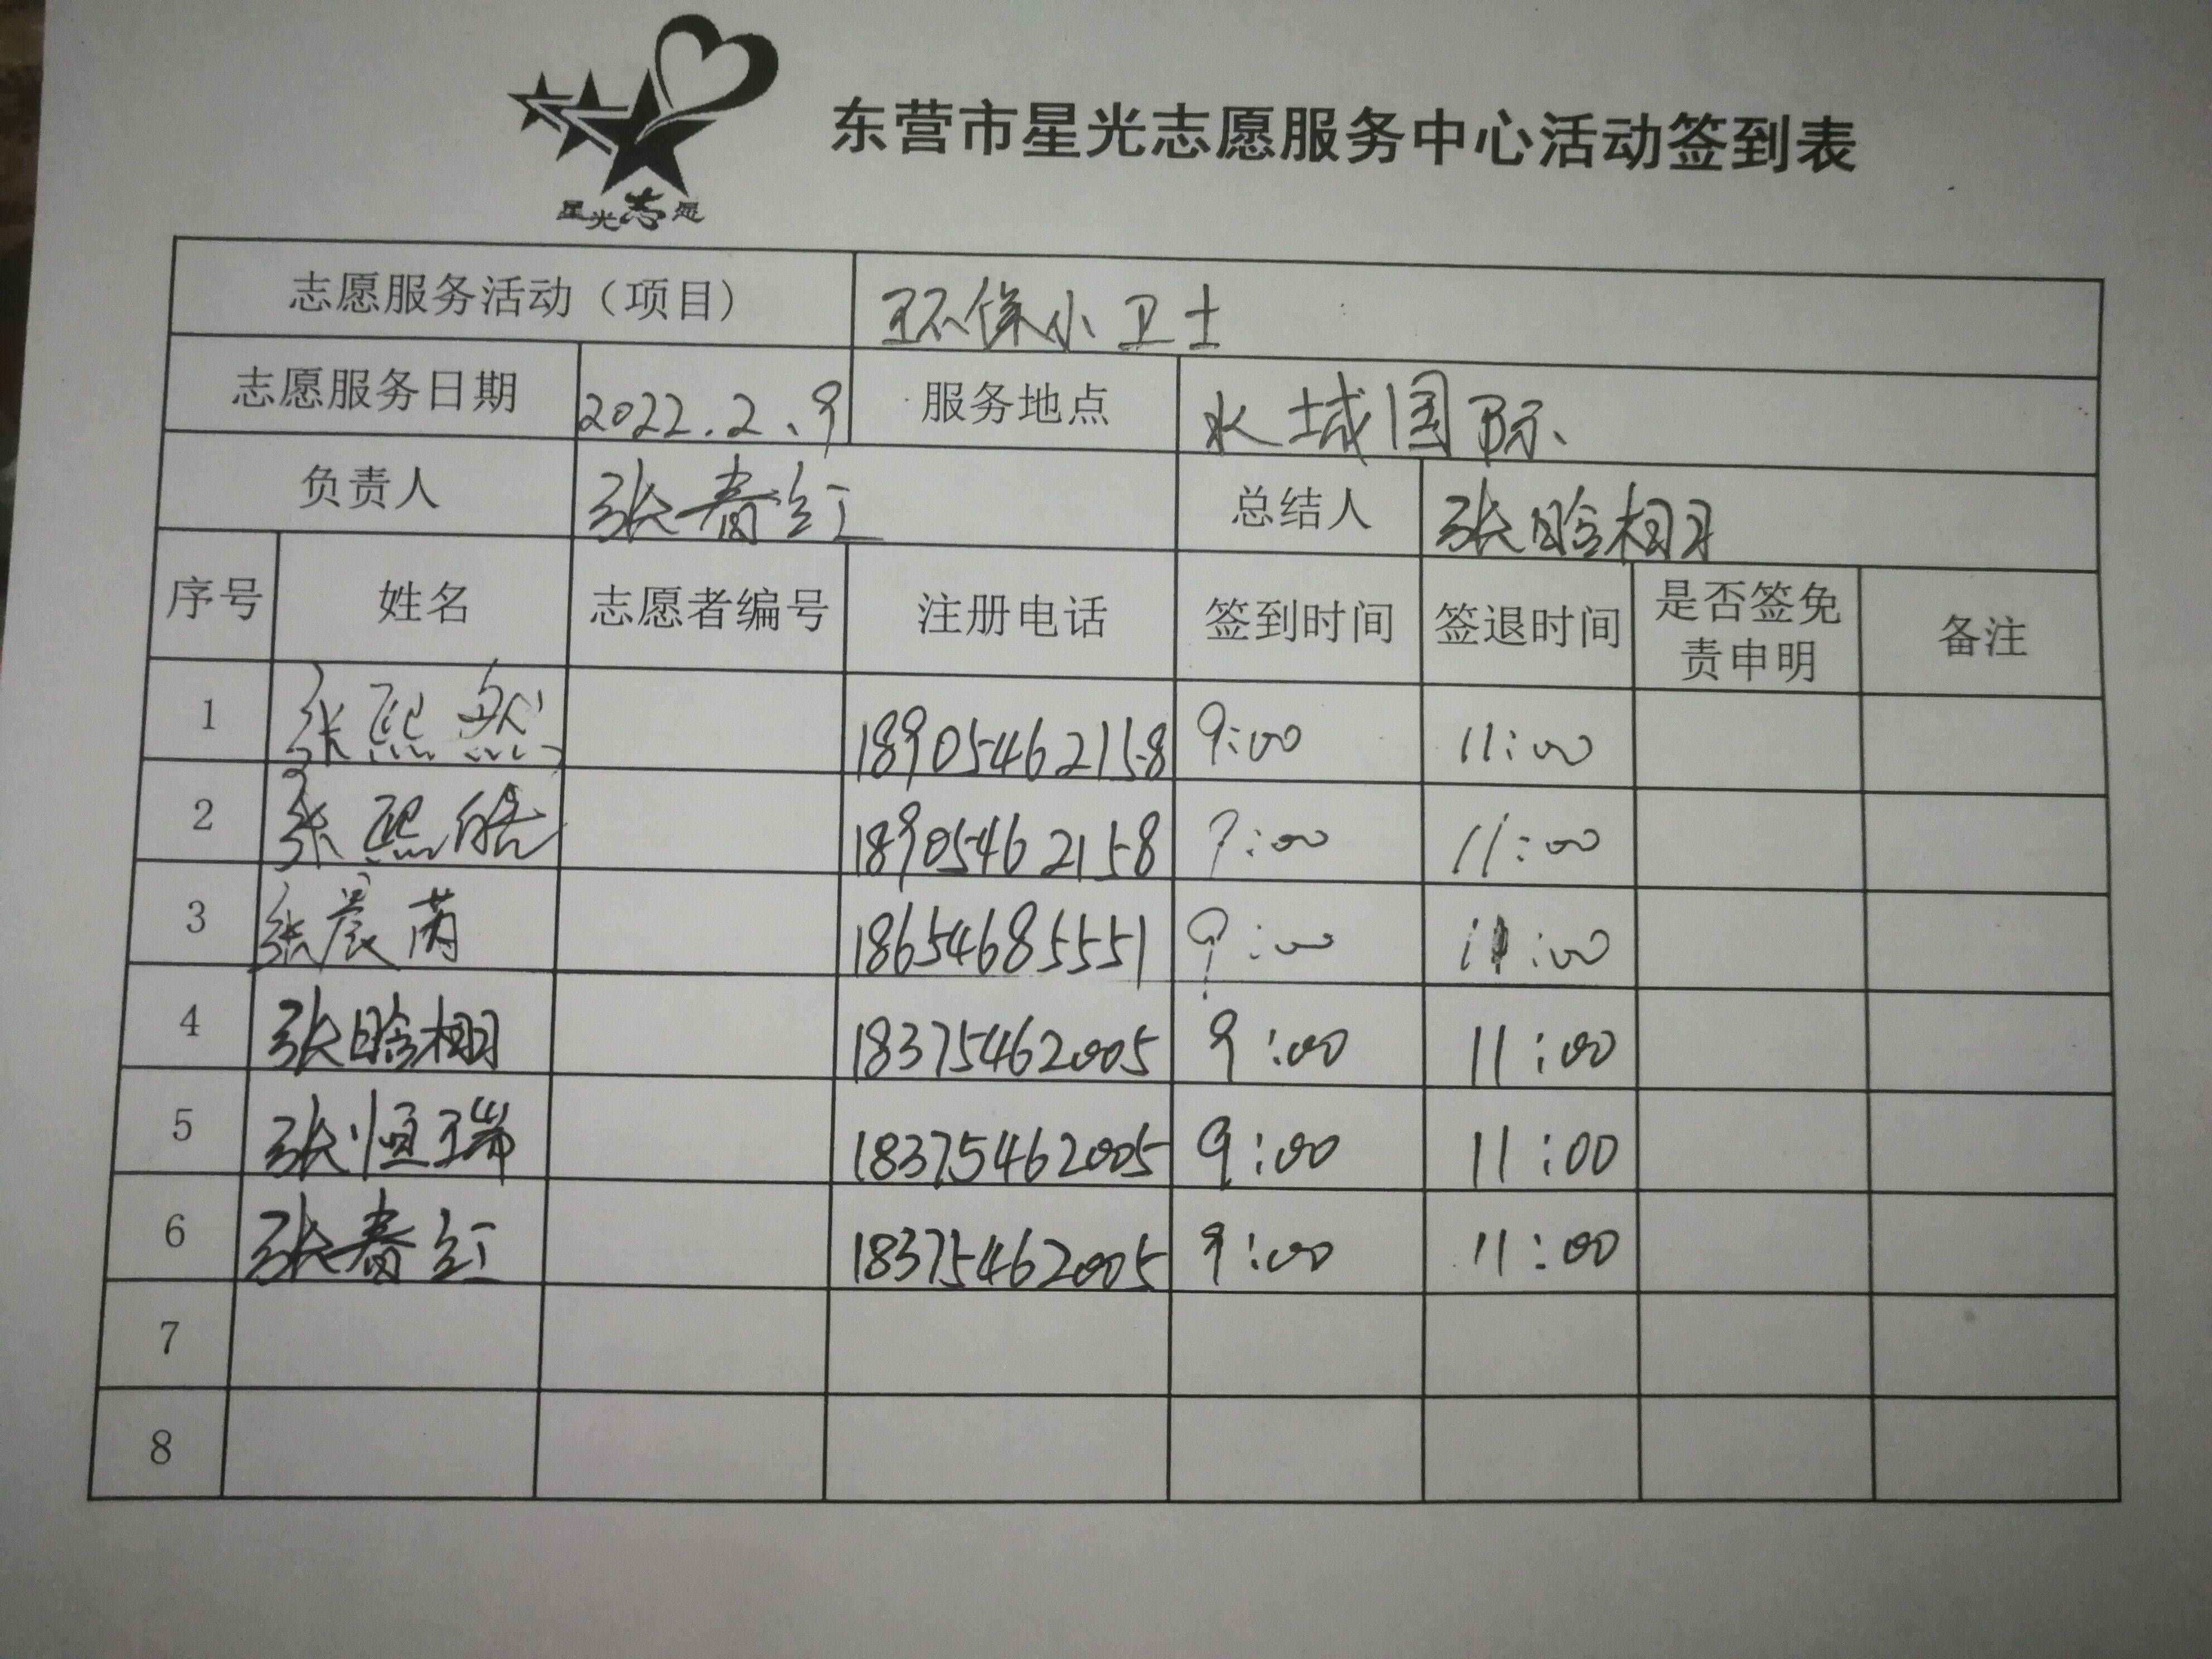 星光志愿
东营市星光志愿服务中心活动签到表
志愿服务活动（项目） 环保小卫士
志愿服务日期 2022.2、9 服务地点 水城国际、
负责人 张春红 总结人 张晗栩
序号 姓名 志愿者编号 注册电话 签到时间 签退时间 是否签免责申明 备注
1 张熙然 18905462158 9:00 11:00
2 张熙皓 18905462158 9:00 11:00
3 张晨芮 18654685551 9:00 11:00
4 张晗栩 18375462005 9:00 11:00
5 张恒瑞 18375462005 9:00 11:00
6 张春红 18375462005 9:00 11:00
7
8